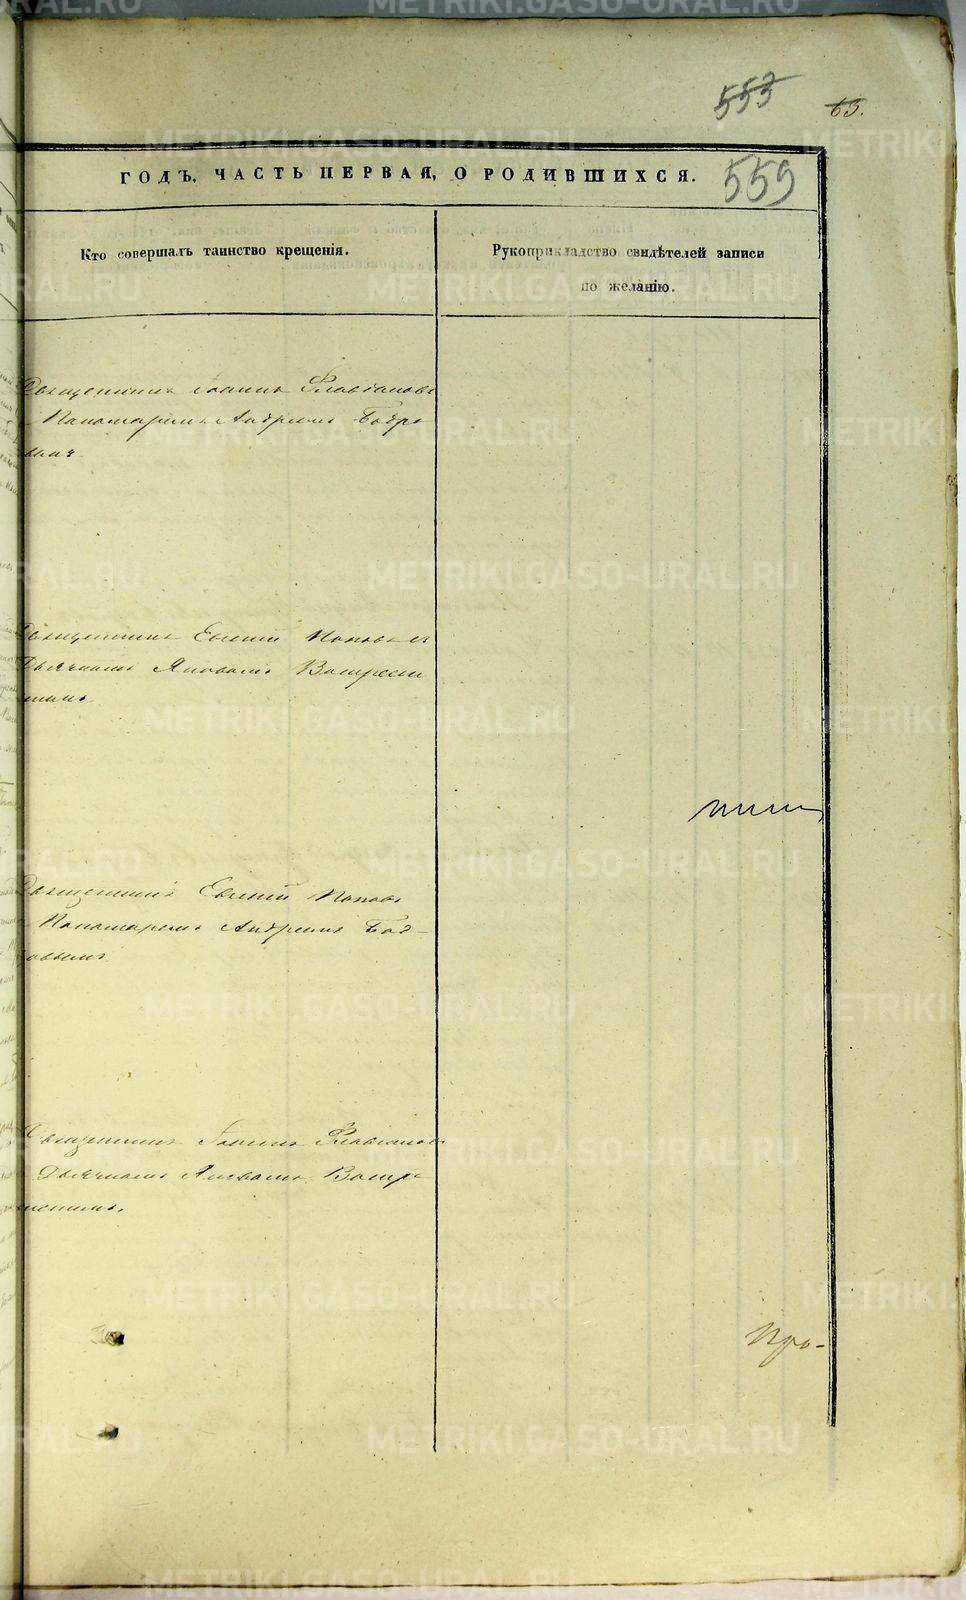 553
63.
ГОДЪ, ЧАСТЬ ПЕРВАЯ, О РОДИВШИХСЯ.
559
Кто совершалъ таинство крещенія.
Рукоприкладство свидѣтелей записи
по желанію.
Священникъ Іоаннъ Флавіановъ
Пономаремъ Андреемъ Бобро
вымъ
Священникъ Евгений Поповъ съ
Дьячкомъ Яковомъ Воскресен
Священникъ Евгений Поповъ
Пономаремъ Андреемъ Боб-
ровымъ
Священникъ Іоаннъ Флавіановъ
Дьячкомъ Яковомъ Воскре
сенскимъ.
Про-
METRIKI.GASO-URAL.RU